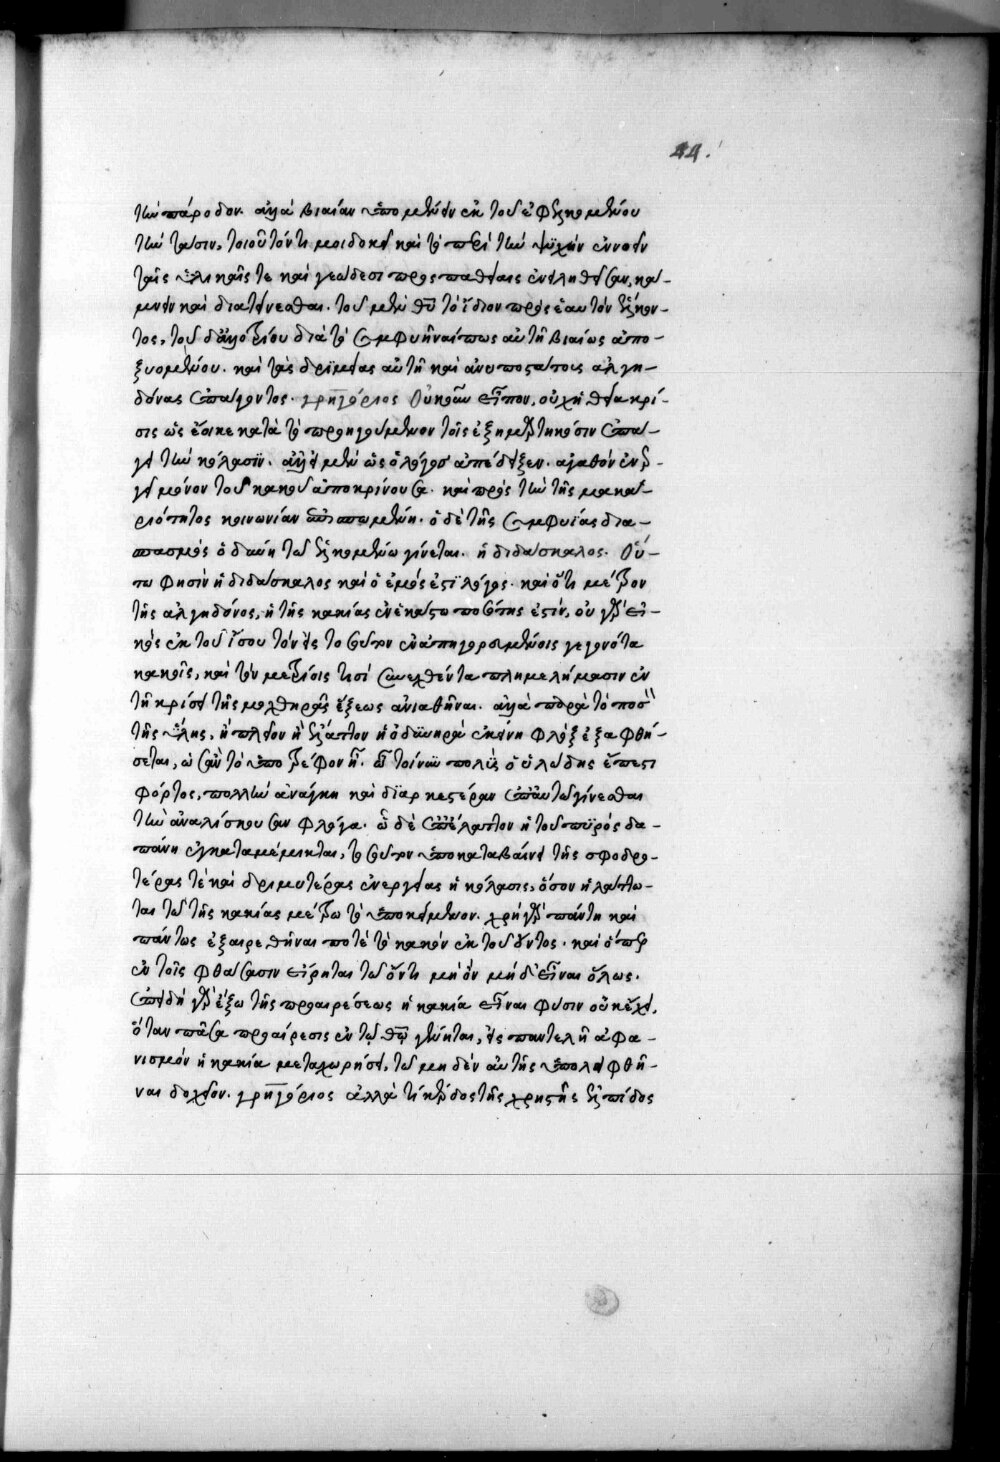 44.
τὴν πάροδον. ἀλλὰ βιαίαν ὑπομένειν ἐκ τοῦ ἐφελκομένου
τὴν τάσιν, τοιοῦτόν τι μοι δοκεῖ καὶ τὸ περὶ τὴν ψυχὴν ἐννοεῖν
ταῖς ὑλικαῖς τε καὶ γεώδεσι προσπαθείαις ἐνειληθεῖσαν, κά-
μνειν καὶ διατείνεσθαι. τοῦ μὲν θῦ τὸ ἴδιον πρὸς ἑαυτὸν ἕλκον-
τος, τοῦ δὲ ἀλλοτρίου διὰ τὸ συμφυῆναί πως αὐτῇ βιαίως ἀπο-
ξυομένου. καὶ τὰς δριμείας αὐτῇ καὶ ἀνυποστάτους ἀλγη-
δόνας ἐπάγοντος. γρηγόριος Οὐκοῦν εἶπον, οὐχ ἡ θεία κρί-
σις ὡς ἔοικε κατὰ τὸ προηγούμενον τοῖς ἐξημαρτηκόσιν ἐπά-
γει τὴν κόλασιν. ἀλλ' ἡ μὲν ὡς ὁ λόγος ἀπέδειξεν. ἀγαθὸν ἐνερ-
γεῖ μόνον τοῦ κακοῦ ἀποκρίνουσα. καὶ πρὸς τὴν τῆς μακα-
ριότητος κοινωνίαν ἐπισπωμένη. ὁ δὲ τῆς συμφυΐας δια-
σπασμὸς ὀδύνη τῷ ἑλκομένῳ γίνεται. ἡ διδάσκαλος. Οὕ-
τω φησὶν ἡ διδάσκαλος καὶ ὁ ἐμός ἐστι λόγος. καὶ ὅτι μέτρον
τῆς ἀλγηδόνος, ἡ τῆς κακίας ἐν ἑκάστῳ ποσότης ἐστίν, οὐ γὰρ εἰ-
κὸς ἐκ τοῦ ἴσου τόν εἰς τοσοῦτον ἐν ἀπηγορευμένοις γεγονότα
κακοῖς, καὶ τὸν μετρίοις τισὶ συνελθέντα πλημμελήμασιν ἐν
τῇ κρίσει τῆς μοχθηρᾶς ἕξεως ἀνιαθῆναι. ἀλλὰ παρὰ τὸ ποσὸν
τῆς ὕλης, ἢ πλεῖον ἢ ἔλαττον ἡ ὀδυνηρὰ ἐκείνη φλὸξ ἐξαφθή-
σεται, ὡς ἂν τὸ ὑποτρέφον ᾖ. ᾧ τοίνυν πολὺς ὁ ὑλώδης ἔπεστι
φόρτος, πολλὴν ἀνάγκη καὶ διαρκεστέραν ἐπ' αὐτῷ γίνεσθαι
τὴν ἀναλίσκουσαν φλόγα. ᾧ δὲ ἐπ' ἔλαττον ἡ τοῦ πυρὸς δα-
πάνη ἐγκαταμέμικται, τοσοῦτον ὑποκαταβαίνει τῆς σφοδρο-
τέρας τὲ καὶ δριμυτέρας ἐνεργείας ἡ κόλασις, ὅσον ἠλάττω-
ται τῷ τῆς κακίας μέτρῳ τὸ ὑποκείμενον. χρὴ γὰρ πάντη καὶ
πάντως ἐξαιρεθῆναι ποτὲ τὸ κακὸν ἐκ τοῦ ὄντος. καὶ ὅπερ
ἐν τοῖς φθάσασιν εἴρηται τῷ ὄντι μὴ ὂν μὴ δ' εἶναι ὅλως.
ἐπειδὴ γὰρ ἔξω τῆς προαιρέσεως ἡ κακία εἶναι φύσιν οὐκ ἔχει,
ὅταν πᾶσα προαίρεσις ἐν τῷ θῷ γένηται, εἰς παντελῆ ἀφα-
νισμὸν ἡ κακία μεταχωρήσει, τῷ μηδὲν αὐτῆς ὑπολειφθῆ-
ναι δοχεῖον. γρηγόριος ἀλλὰ τί κέρδος τῆς χρηστῆς ἐλπίδος